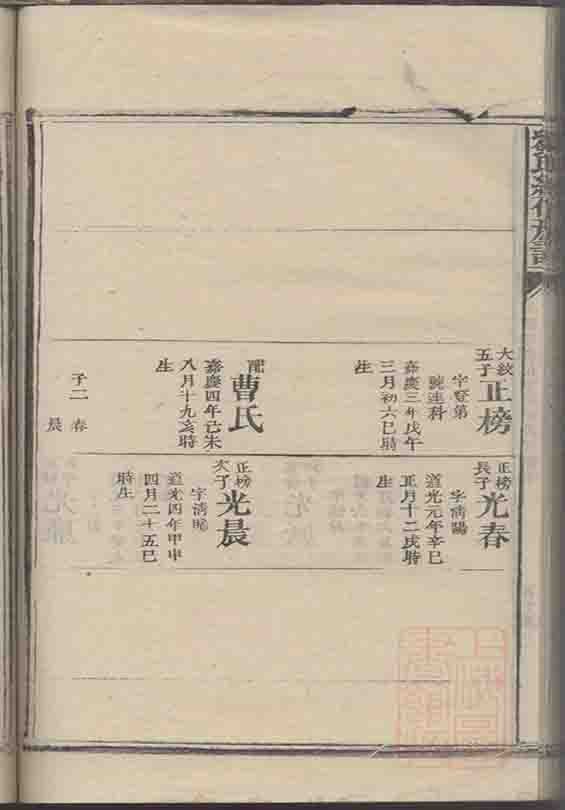 大紋
五子
正榜
字登第
號連科
嘉慶三年戊午
三月初六巳時
生
配
曹氏
嘉慶四年己未
八月十九亥時
生
子二
春
晨
正榜
長子
光春
字清陽
道光元年辛巳
正月十二戌時
生
正榜
次子
光晨
道光四年甲申
四月二十五巳
時生